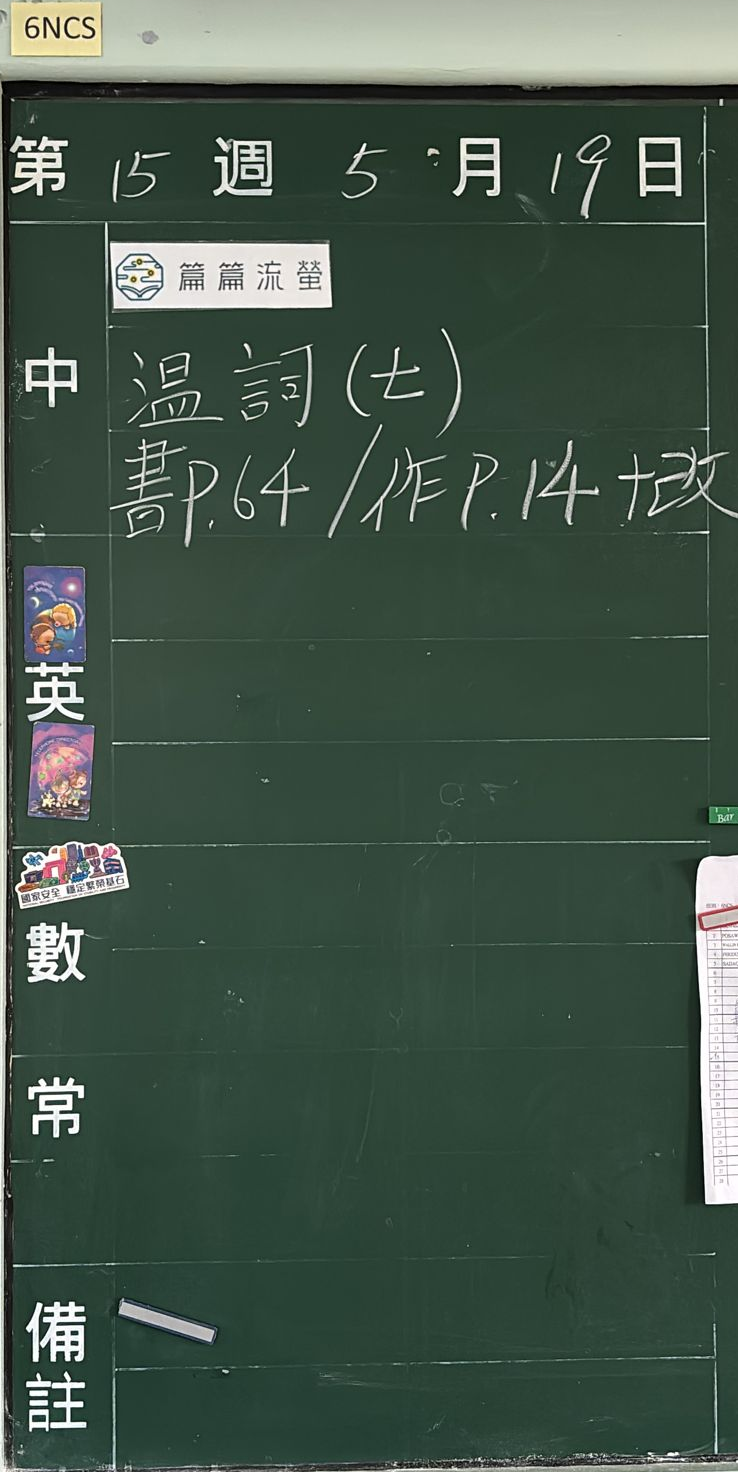 6NCS
第 15 週 5 月 19 日
篇篇流螢
中
温詞(七)
書P.64/作P.14+改
英
國家安全 穩定繁榮基石
數
常
備註
Bar